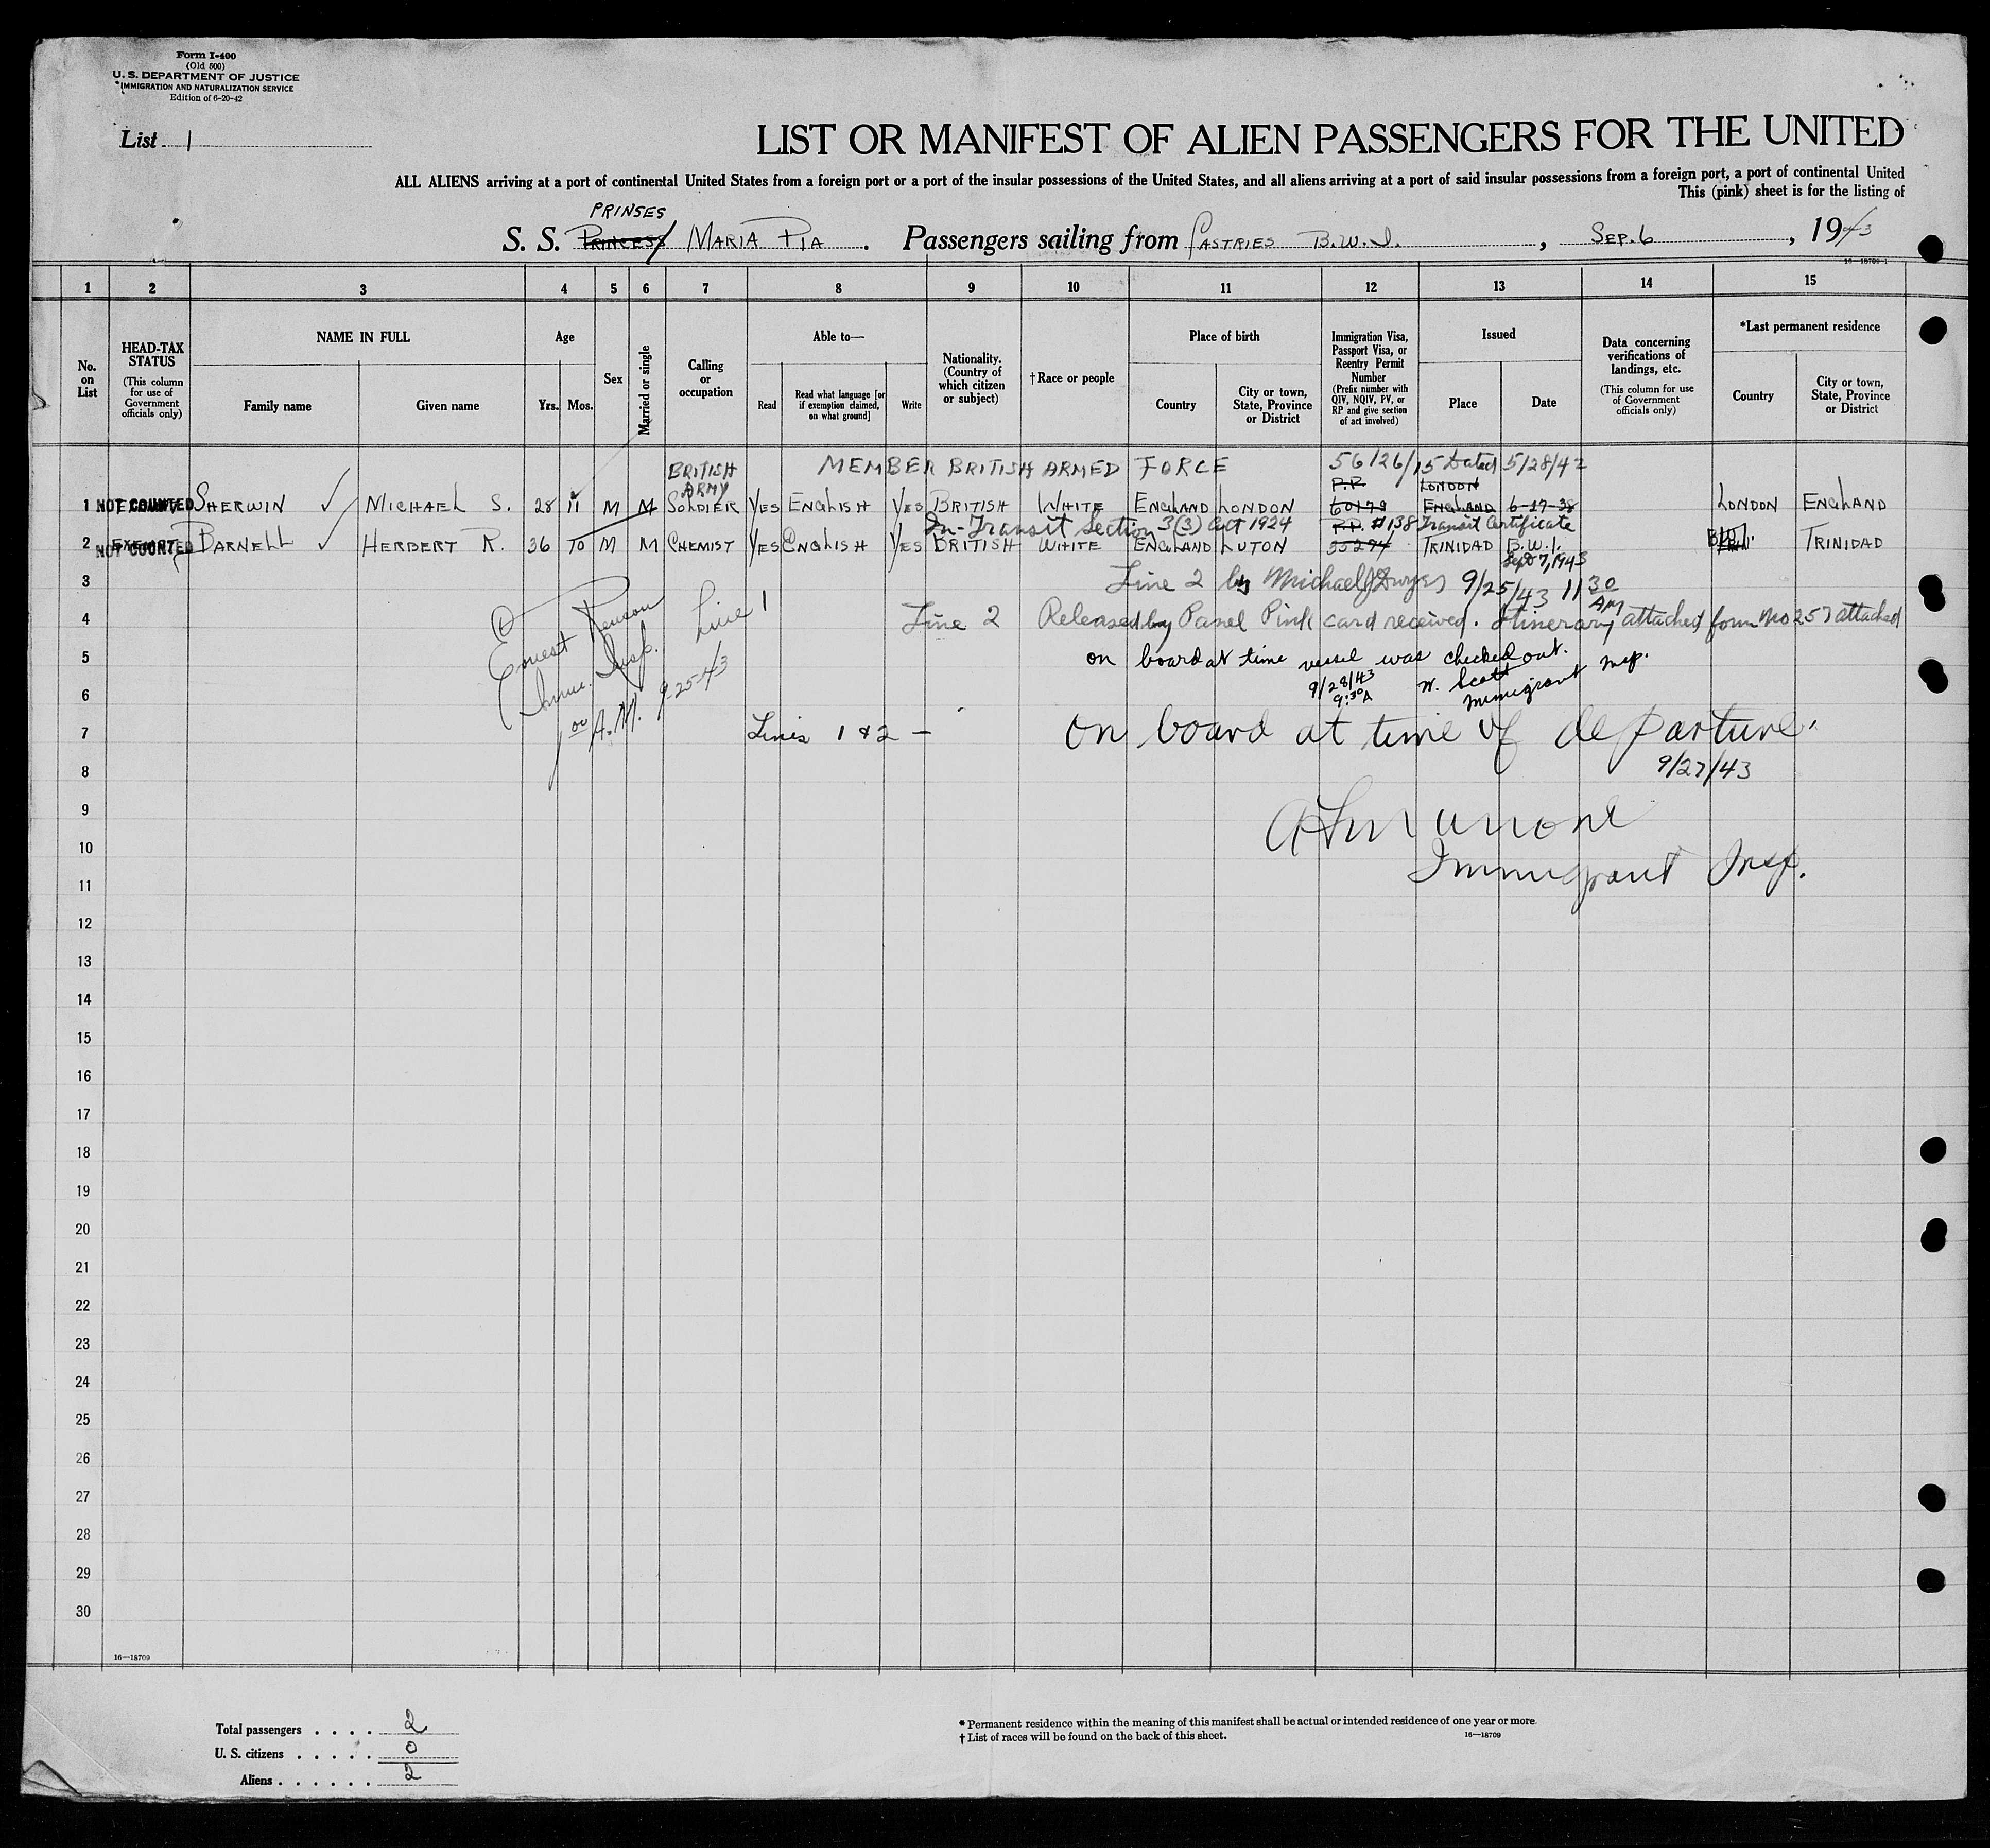 Form I-400
(Old 500)
U. S. DEPARTMENT OF JUSTICE
IMMIGRATION AND NATURALIZATION SERVICE
Edition of 6-20-42
List 1
LIST OR MANIFEST OF ALIEN PASSENGERS FOR THE UNITED
ALL ALIENS arriving at a port of continental United States from a foreign port or a port of the insular possessions of the United States, and all aliens arriving at a port of said insular possessions from a foreign port, a port of continental United
This (pink) sheet is for the listing of
PRINSES
S. S. PRINCESS MARIA PIA . Passengers sailing from CASTRIES B.W.I. , SEP. 6 , 1943
16—18709-1
1 2 3 4 5 6 7 8 9 10 11 12 13 14 15
No. on List
HEAD-TAX STATUS
(This column for use of Government officials only)
NAME IN FULL
Family name
Given name
Age
Yrs. Mos.
Sex
Married or single
Calling or occupation
Able to—
Read
Read what language [or if exemption claimed, on what ground]
Write
Nationality. (Country of which citizen or subject)
†Race or people
Place of birth
Country
City or town, State, Province or District
Immigration Visa, Passport Visa, or Reentry Permit Number
(Prefix number with QIV, NQIV, PV, or RP and give section of act involved)
Issued
Place
Date
Data concerning verifications of landings, etc.
(This column for use of Government officials only)
*Last permanent residence
Country
City or town, State, Province or District
BRITISH ARMY MEMBER BRITISH ARMED FORCE 56126/15 Dated 5/28/42
P.P. LONDON
1 NOT COUNTED SHERWIN ✓ MICHAEL S. 28 11 M M SOLDIER YES ENGLISH YES BRITISH WHITE ENGLAND LONDON 60179 ENGLAND 6-17-38 LONDON ENGLAND
In-Transit Section 3(3) Act 1924 P.P. #138 Transit Certificate
2 EXEMPT NOT COUNTED BARNELL ✓ HERBERT R. 36 10 M M CHEMIST YES ENGLISH YES BRITISH WHITE ENGLAND LUTON 35294 TRINIDAD B.W.I. TRINIDAD
Sept 7, 1943
3 Line 2 by Michael J Dwyer 9/25/43 11 30 AM
4 Line 2 Released by Panel Pink card received. Itinerary attached form No 257 attached
Ernest Renson Line 1
Imm. Insp.
00 A.M. 9-25-43
5 on board at time vessel was checked out.
6 9/28/43 9:30 A W. Scott Immigrant Insp.
7 Lines 1 & 2 — on board at time of departure.
8 9/27/43
9
10 Immigrant Insp.
11
12
13
14
15
16
17
18
19
20
21
22
23
24
25
26
27
28
29
30
16—18709
Total passengers . . . . 2
U. S. citizens . . . . . 0
Aliens . . . . . . 2
* Permanent residence within the meaning of this manifest shall be actual or intended residence of one year or more.
† List of races will be found on the back of this sheet. 16—18709